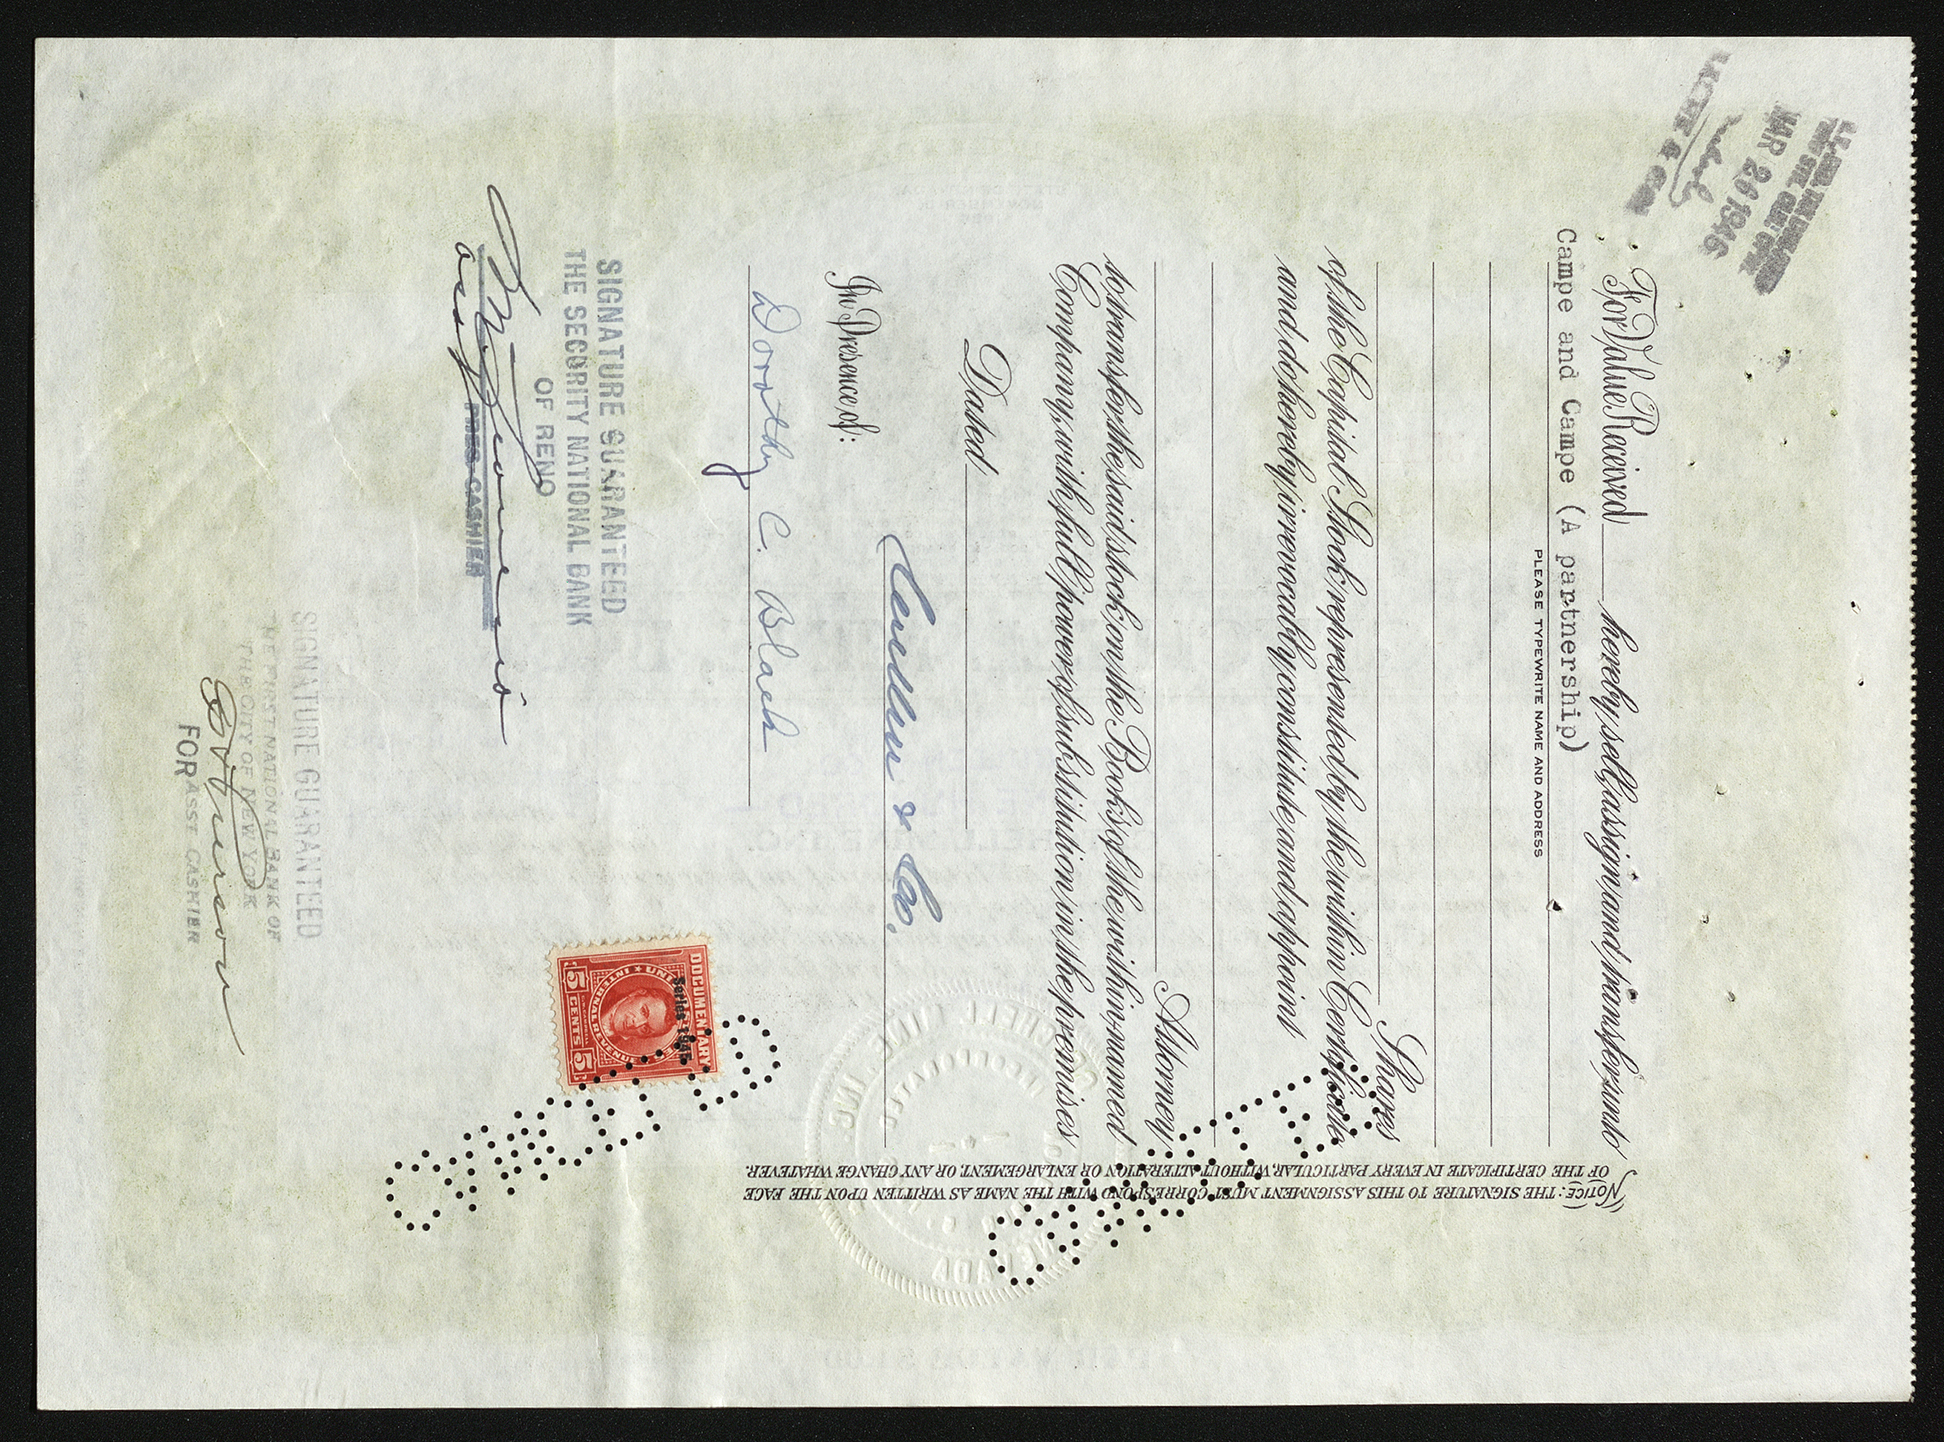 MAR 20 1946
For Value Received hereby sell, assign and transfer unto
Campe and Campe (A partnership)
PLEASE TYPEWRITE NAME AND ADDRESS
Shares
of the Capital Stock represented by the within Certificate
and do hereby irrevocably constitute and appoint
Attorney
to transfer the said stock on the Books of the within-named
Company, with full power of substitution in the premises
Dated
& Co.
In Presence of:
Dorothy C. Black
SIGNATURE GUARANTEED
THE SECURITY NATIONAL BANK
OF RENO
CASHIER
SIGNATURE GUARANTEED
THE FIRST NATIONAL BANK OF
THE CITY OF NEW YORK
FOR ASST CASHIER
DOCUMENTARY
Series 1945
UNITED STATES
INTERNAL REVENUE
5 CENTS 5
NOTICE: THE SIGNATURE TO THIS ASSIGNMENT MUST CORRESPOND WITH THE NAME AS WRITTEN UPON THE FACE
OF THE CERTIFICATE IN EVERY PARTICULAR, WITHOUT ALTERATION OR ENLARGEMENT, OR ANY CHANGE WHATEVER.
NEVADA
INC.